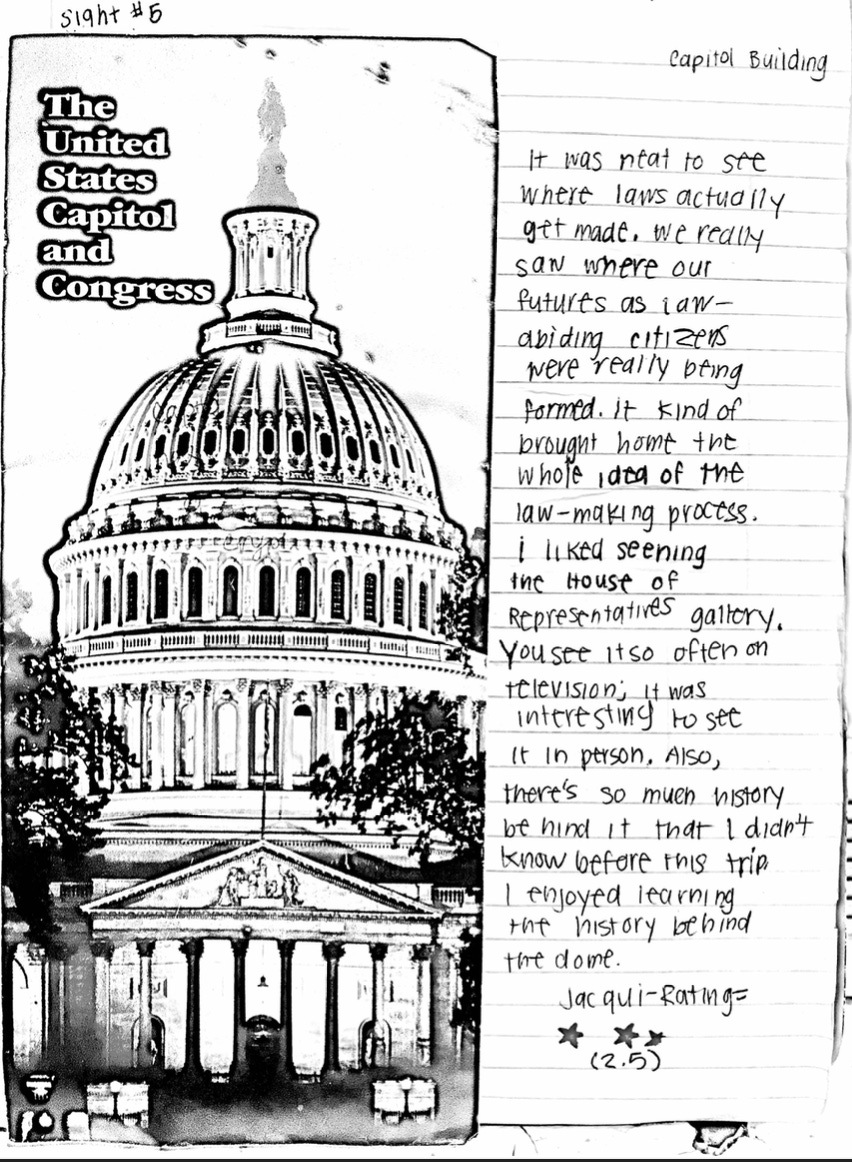 Sight #5
The
United
States
Capitol
and
Congress
Capitol Building
It was neat to see
where laws actually
get made. We really
saw where our
futures as law-
abiding citizens
were really being
formed. It kind of
brought home the
whole idea of the
law-making process.
I liked seening
the House of
Representatives gallery.
You see it so often on
television; it was
interesting to see
it in person. Also,
there's so much history
behind it that I didn't
know before this trip.
I enjoyed learning
the history behind
the dome.
Jacqui-Rating=
(2.5)